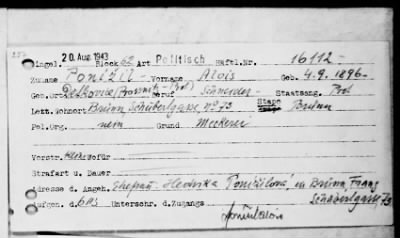 Eingel. 20 Aug. 1943 Block 62 Art Politisch Häfel.Nr. 16112-
Zuname Ponižil - Vorname Alois Geb. 4.9.1896-
Geb.Ort (Prossnitz - Prot) Beruf Schneider- Staatsang. Prot
Letzt.Wohnort Brünn, Schubertgasse, No 73 Stapo Brünn
Pol.Org. nein Grund Meckerei
Vorstr. keine Wofür
Strafart u. Dauer
Adresse d. Angeh. Ehefrau: Hedvika Ponižilová, in Brünn, Franz
Schubertgasse, 73
Aufgen. d. Unterschr. d. Zugangs